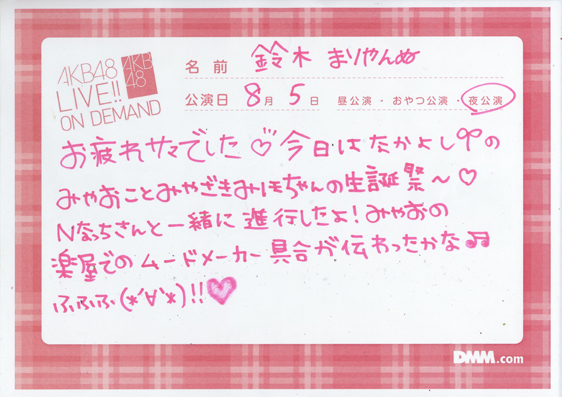 AKB48
LIVE!!
ON DEMAND
AKB
48
名前 鈴木 まりやんぬ
公演日 8月 5日 昼公演・おやつ公演・夜公演
お疲れサマでした♡今日はたかよしの
みゃおことみやざきみほちゃんの生誕祭〜♡
Nなっちさんと一緒に進行したよ!みゃおの
楽屋でのムードメーカー具合が伝わったかな♫
ふふふ(*'∀'*)!!♡
DMM.com